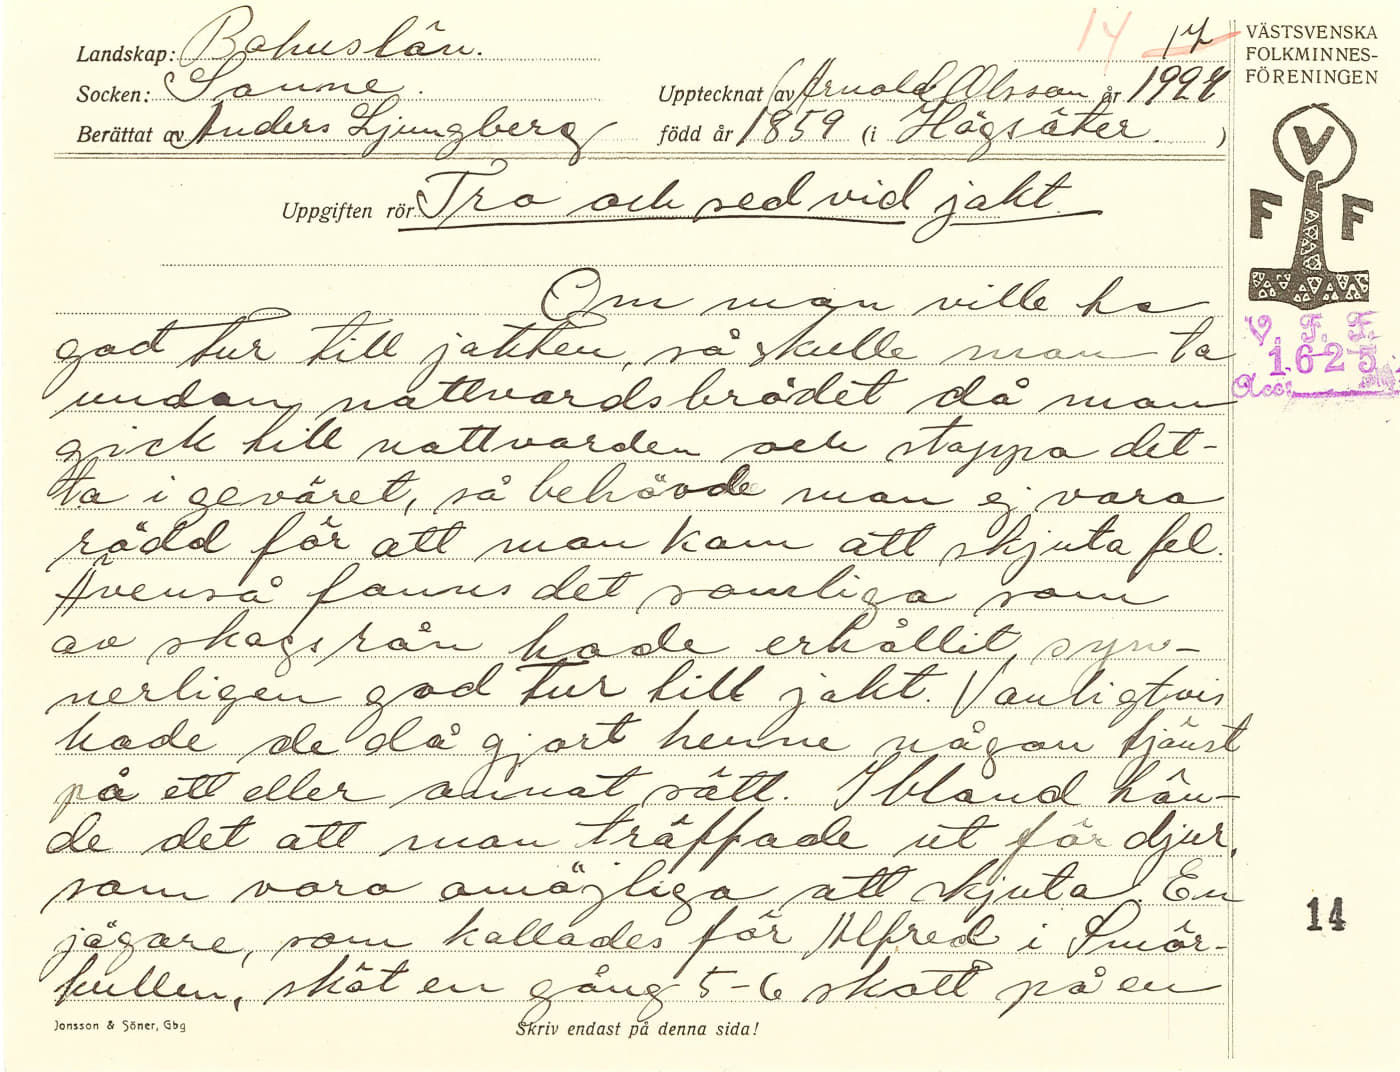 Landskap: Bohuslän.
Socken: Sanne.
Upptecknat av Arnold Olsson år 1927
Berättat av Anders Ljungberg född år 1859 (i Högsäter )
14 14
VÄSTSVENSKA
FOLKMINNES-
FÖRENINGEN
V
F F
V. F. F.
1625
Acc:
Uppgiften rör Tro och sed vid jakt
Om man ville ha
god tur till jakten, så skulle man ta
undan nattvardsbrödet då man
gick till nattvarden och stoppa det-
ta i geväret, så behövde man ej vara
rädd för att man kom att skjuta fel.
Ävenså fanns det somliga som
av skogsrån hade erhållit syn-
nerligen god tur till jakt. Vanligtvis
hade de då gjort henne någon tjänst
på ett eller annat sätt. Ibland hän-
de det att man träffade ut för djur,
som voro omöjliga att skjuta. En
jägare, som kallades för Alfred i Smör-
kullen, sköt en gång 5-6 skott på en
14
Jonsson & Söner, Gbg
Skriv endast på denna sida!